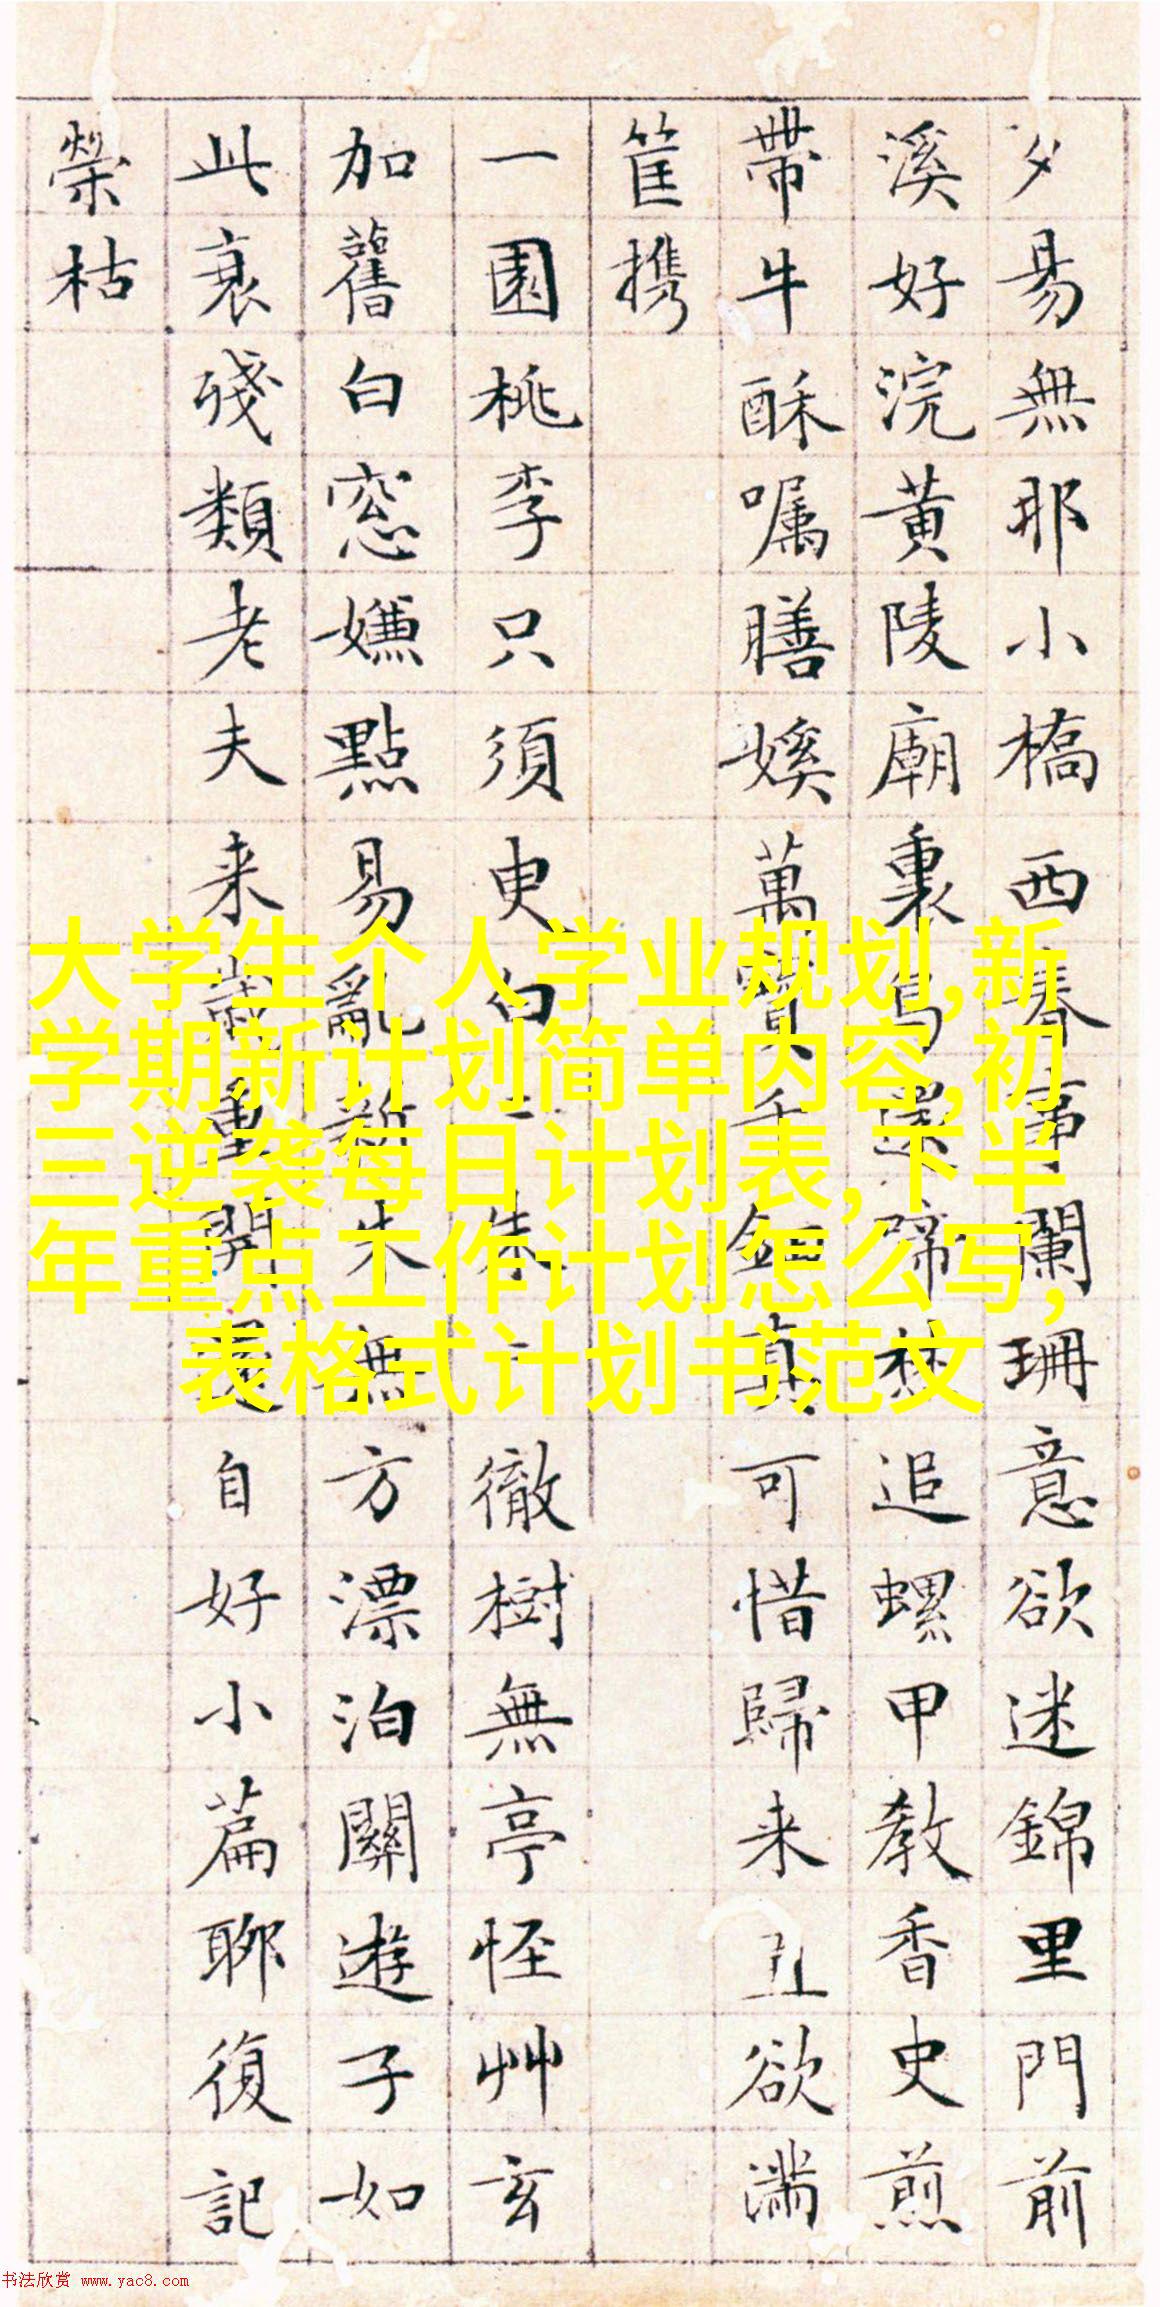 夕易無耶小橋西春事闌珊意欲迷錦里門前
溪好浣黄陵廟裏鳥還啼林追螺甲教香史煎
帶牛酥嘱膳娭萬寶千釦真可惜歸来丑欲滿
筐携
一園桃李只須臾白朱徹樹無亭怪艸玄
加舊白窓嫌點易亂新朱無方漂泊關遊子如
此衰殘類老夫来歲重開還自好小篇聊復記
榮枯
大学生个人学业规划,新
学期新计划简单内容,初
三逆袭每日计划表,下半
年重点工作计划怎么写,
表格式计划书范文
书法欣赏 www.yac8.com